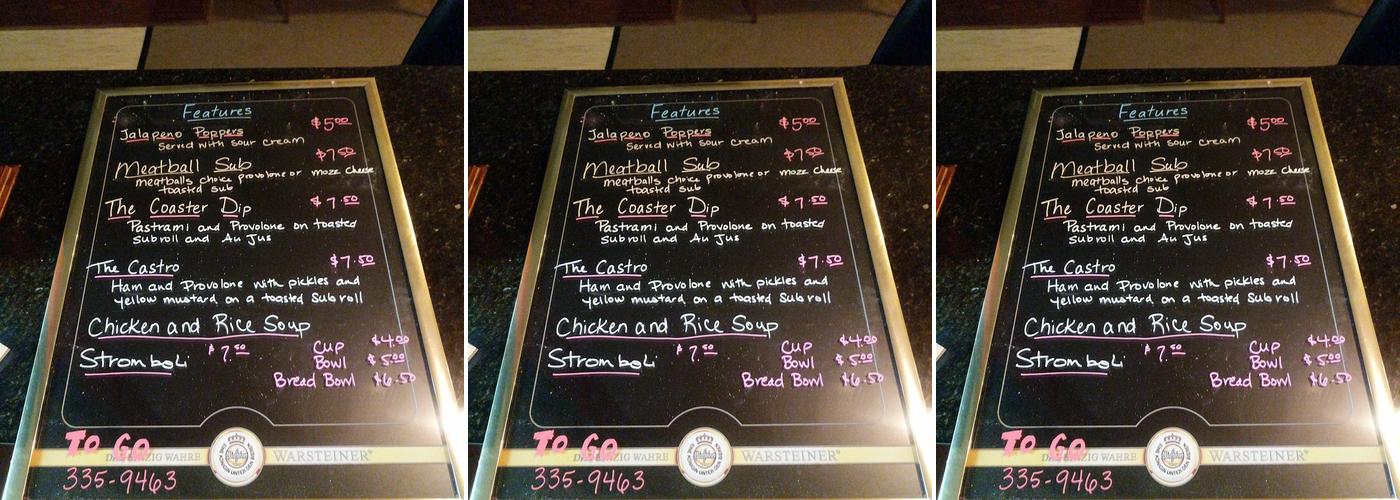 Features
Jalapeno Poppers $5.00
Served with sour cream
Meatball Sub $7.50
meatballs choice provolone or mozz cheese
toasted sub
The Coaster Dip $7.50
Pastrami and Provolone on toasted
sub roll and Au Jus
The Castro $7.50
Ham and Provolone with pickles and
yellow mustard on a toasted Sub roll
Chicken and Rice Soup
Cup $4.00
Stromboli $7.50
Bowl $5.00
Bread Bowl $6.50
TO GO
WAHRE WARSTEINER
335-9463
Features
Jalapeno Poppers $5.00
Served with sour cream
Meatball Sub $7.50
meatballs choice provolone or mozz cheese
toasted sub
The Coaster Dip $7.50
Pastrami and Provolone on toasted
sub roll and Au Jus
The Castro $7.50
Ham and Provolone with pickles and
yellow mustard on a toasted Sub roll
Chicken and Rice Soup
Cup $4.00
Stromboli $7.50
Bowl $5.00
Bread Bowl $6.50
TO GO
WAHRE WARSTEINER
335-9463
Features
Jalapeno Poppers $5.00
Served with sour cream
Meatball Sub $7.50
meatballs choice provolone or mozz cheese
toasted sub
The Coaster Dip $7.50
Pastrami and Provolone on toasted
sub roll and Au Jus
The Castro $7.50
Ham and Provolone with pickles and
yellow mustard on a toasted Sub roll
Chicken and Rice Soup
Cup $4.00
Stromboli $7.50
Bowl $5.00
Bread Bowl $6.50
TO GO
WAHRE WARSTEINER
335-9463